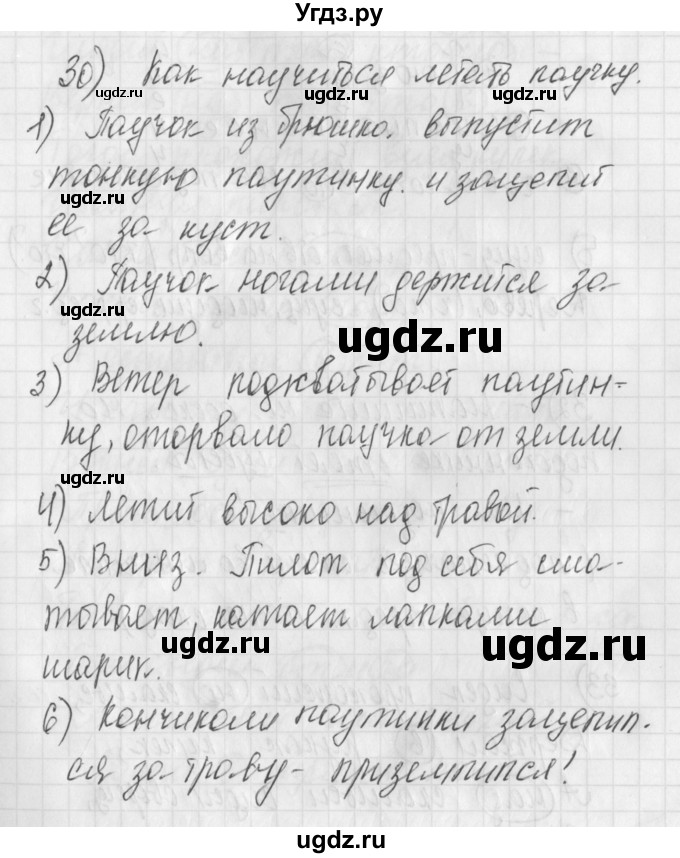 Угдз.ру
30) Как научиться летать паучку.
ugdz.ru ugdz.ru ugdz.ru
1) Паучок из брюшка, выпустит
тонкую паутинку. и зацепит
ugdz.ru
ее за куст.
2) Паучок ногами держится за
ugdz.ru
землю.
ugdz.ru
3) Ветер подхватывает паутин-
ку, оторвало паучка от земли.
ugdz.ru
4) Летит высоко над травой.
5) Вниз. Пилот под себя сма-
тывает, катает лапками
ugdz.ru ugdz.ru
шарик.
6) Кончиком паутинки зацепил-
ся за траву - приземлился!
ugdz.ru
ugdz.ru